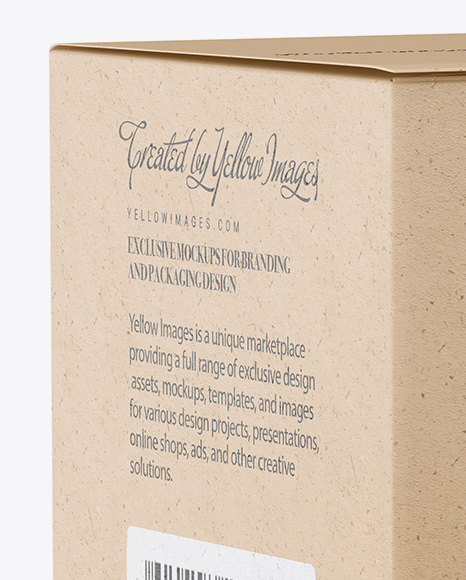 Created by Yellow Images
YELLOWIMAGES.COM
EXCLUSIVE MOCKUPS FOR BRANDING
AND PACKAGING DESIGN
Yellow Images is a unique marketplace
providing a full range of exclusive design
assets, mockups, templates, and images
for various design projects, presentations,
online shops, ads, and other creative
solutions.